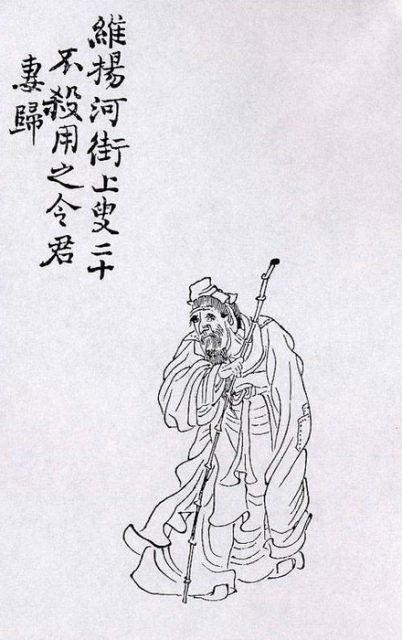 維揚河街上叟二十
不殺用之令君
妻歸